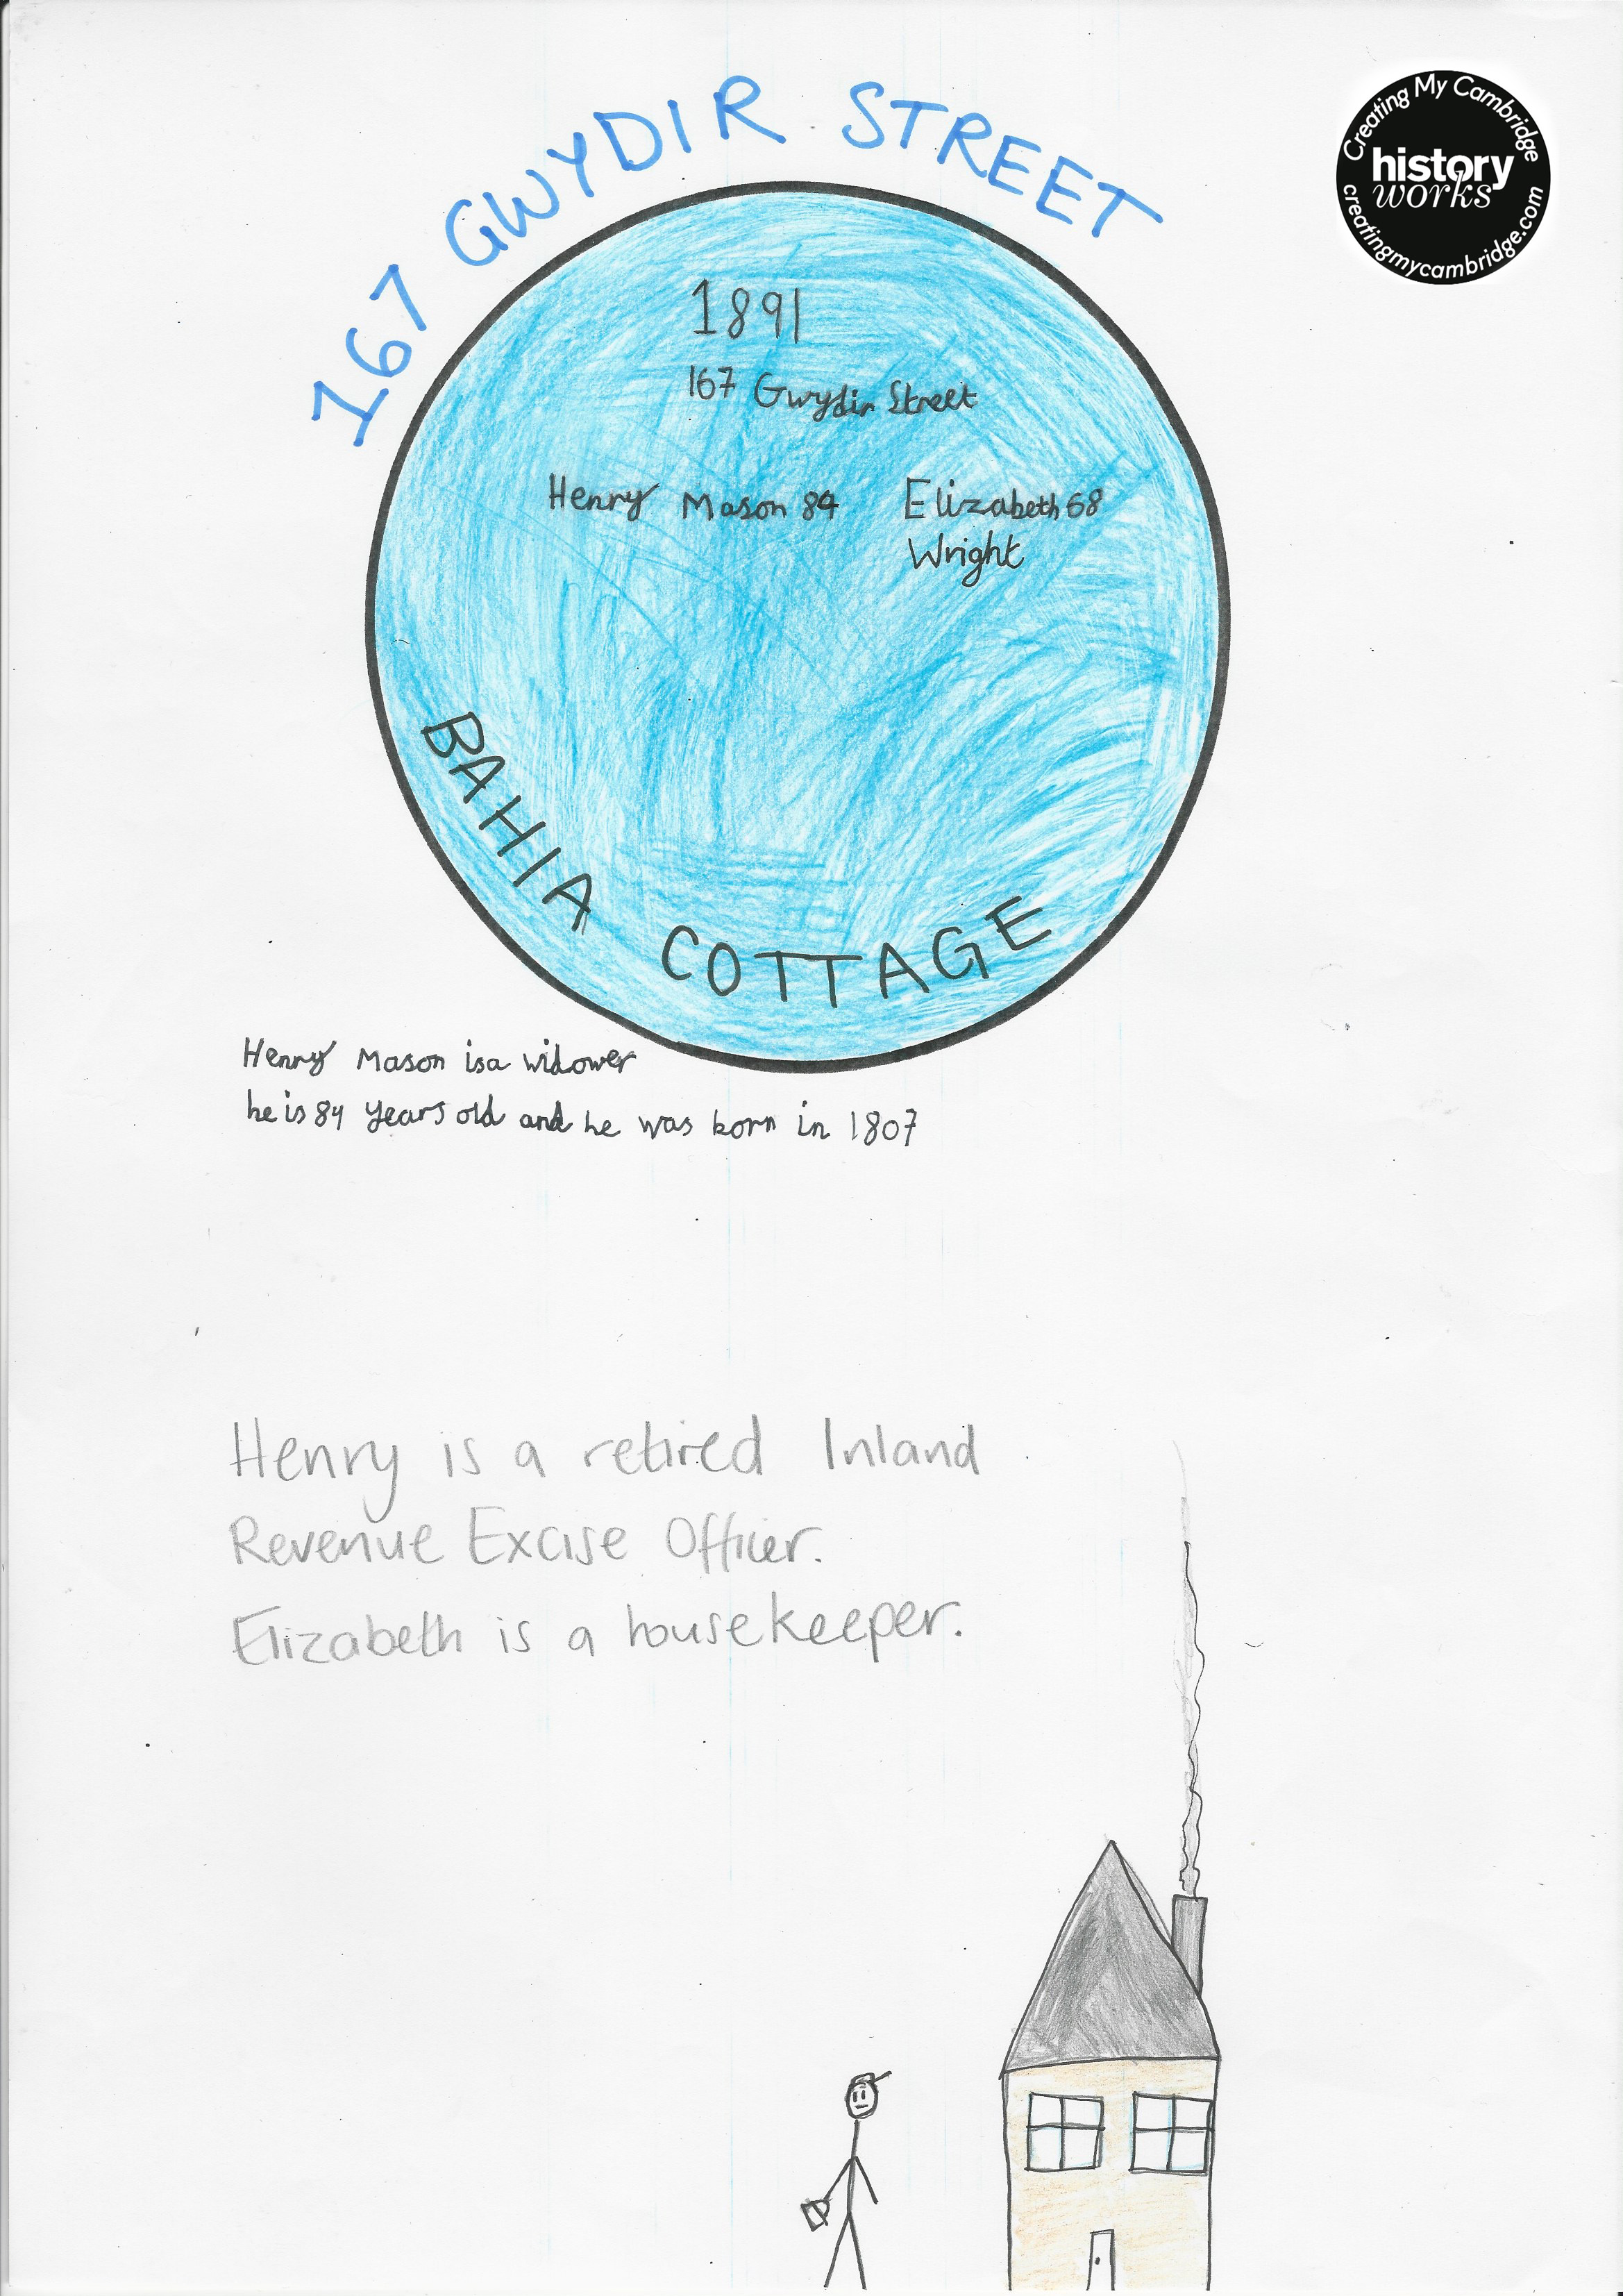 167 GWYDIR STREET
Creating My Cambridge
history
works
creatingmycambridge.com
1891
167 Gwydir Street
Henry Mason 84 Elizabeth 68
Wright
BAHIA COTTAGE
Henry Mason is a widower
he is 84 years old and he was born in 1807
Henry is a retired Inland
Revenue Excise Officer.
Elizabeth is a housekeeper.